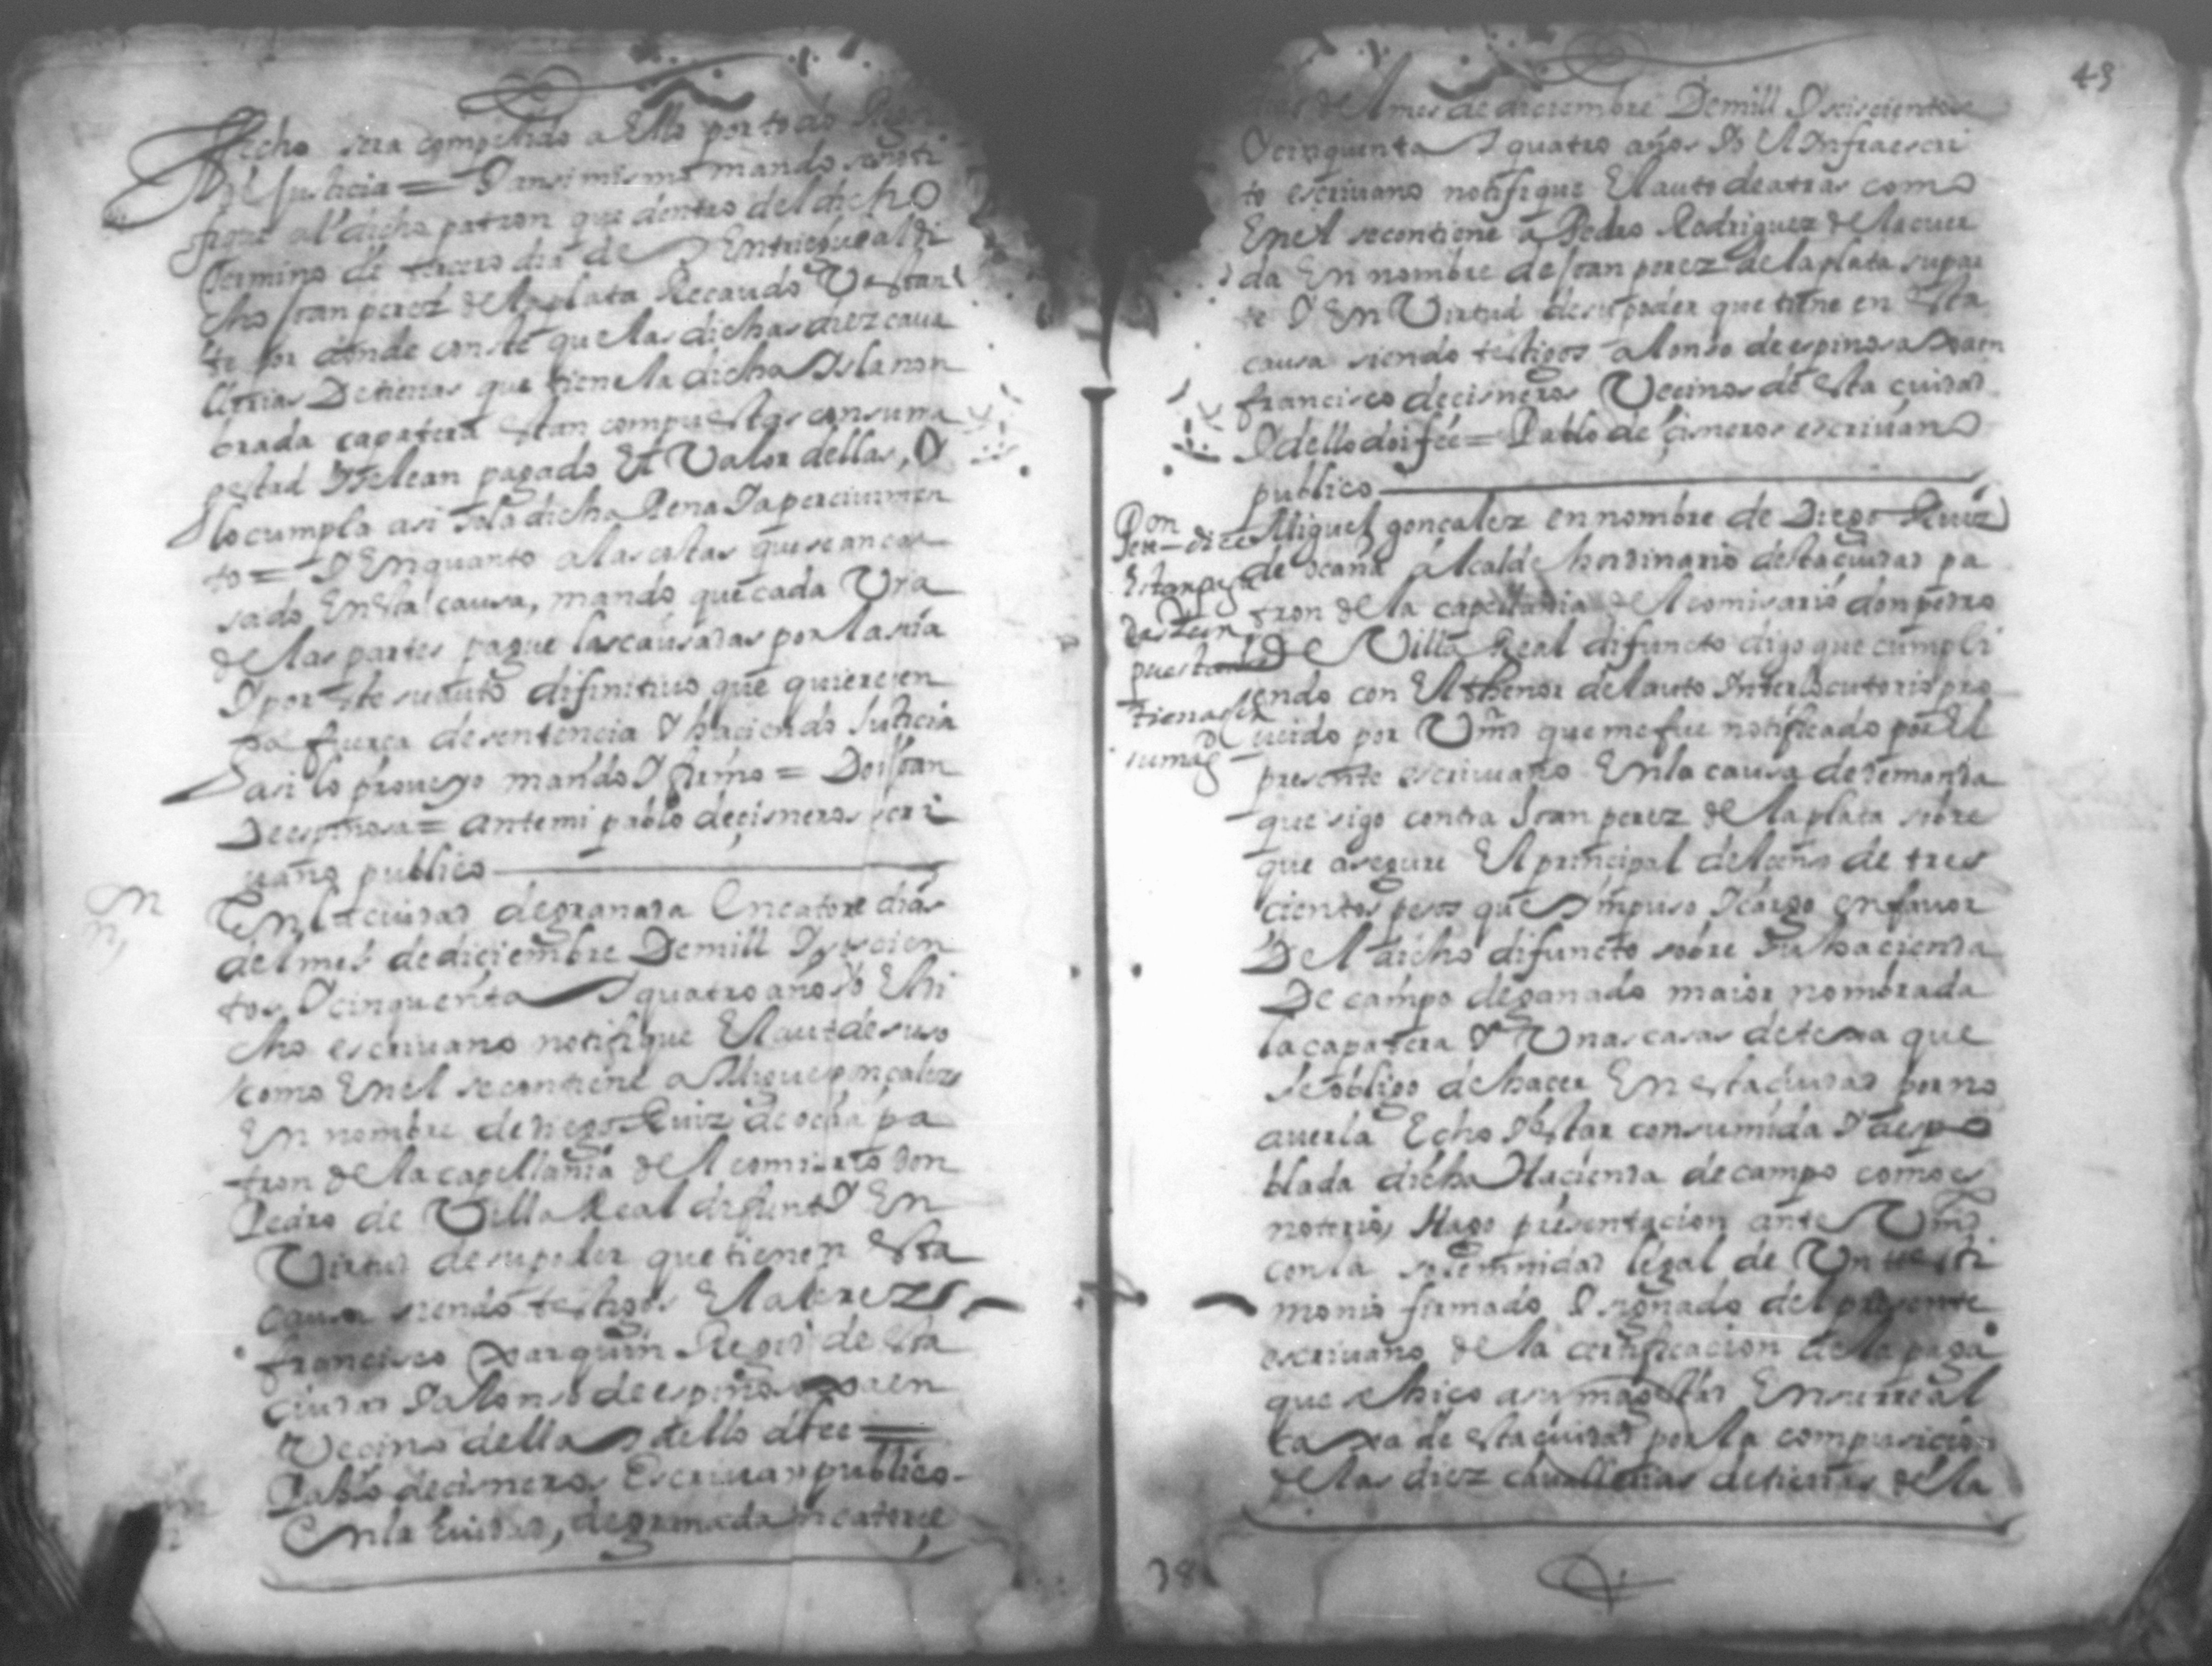 echo sera compelido a Ello por todo Rigor
de Justicia = I ansimismo mando se noti
fique al dicho patron que dentro del dicho
termino de tercero dia de I Entriegue al di
cho Joan perez de la plata Recaudo Vastan
te por donde conste que las dichas diez caua
llerias De tierras que tiene la dicha Isla non
brada capatera estan compuestas con su ma
gestad I se le an pagado El Valor dellas, I
lo cumpla asi so la dicha Pena I aperciuimien
to = I En quanto a las costas que se an cau
sado En esta causa, mando que cada Vna
de las partes pague las causadas por la suia
I por este su auto difinitiuo que quiere ten
ga fuerça de sentencia I haciendo Justicia
asi lo proueyo mando I firmo = Don Joan
De espinosa = ante mi pablo de cisneros scri
uano publico
En la ciudad de granada En catorze dias
del mes de diciembre De mill I seiscien
tos I cinquenta I quatro años Io El di
cho escriuano notifique El auto de suso
como En el se contiene a Miguel gonçalez
En nombre de diego Ruiz de ocaña pa
tron de la capellania del comisario don
Pedro de Villa Real difunto I En
Virtud de su poder que tiene en Esta
causa siendo testigos El alferez
francisco Marquin Regidor de Esta
ciudad I alonso de espinosa
Vecino della I dello doi fee =
Pablo de cisneros Escriuano publico
En la Ciudad, de granada En catorce
43
dias del mes de diciembre De mill I seiscientos
I cinquenta I quatro años Io El Infraescri
to escriuano notifique El auto de atras como
En el se contiene a Pedro Rodriguez de la cuer
da En nombre de Joan perez de la plata su par
te I En Virtud de su poder que tiene en Esta
causa siendo testigos alonso de espinosa
francisco de cisneros Vecinos de Esta ciudad
I dello doi fee = Pablo de cisneros escriuano
publico
Miguel gonçalez en nombre de Diego Ruiz
de ocaña alcalde hordinario desta ciudad pa
tron de la capellania del comisario don pedro
De Villa Real difuncto digo que cumpli
endo con El thenor del auto Interlocutorio pro
ueido por Vmd que me fue notificado por El
presente escriuano En la causa de demanda
que sigo contra Joan perez de la plata sobre
que asegure El principal del censo de tres
cientos pesos que Impuso I cargo en fauor
Del dicho difuncto sobre su hacienda
De campo de ganado maior nombrada
la capatera I Vnas casas de texa que
se obligo de hacer En esta ciudad por no
auerla Echo I estar consumida I despo
blada dicha Hacienda de campo como es
notorio, Hago presentacion ante Vmd
con la solemnidad legal de Vn testi
monio firmado I signado del presente
escriuano de la certificacion de la paga
que se hiço a su magestad En su real
caxa de esta ciudad por la composicion
de las diez cauallerias de tierras de la
38